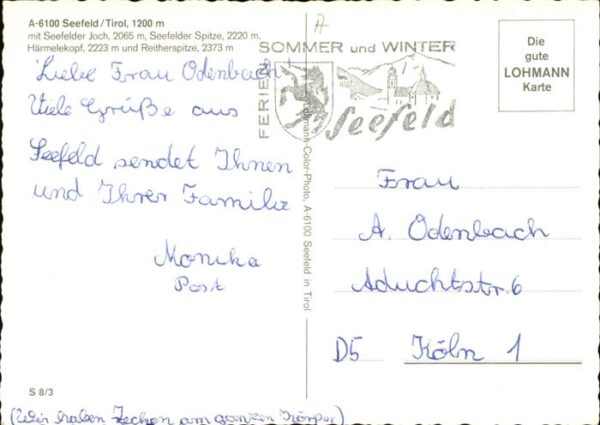 A-6100 Seefeld/Tirol, 1200 m
mit Seefelder Joch, 2065 m, Seefelder Spitze, 2220 m,
Härmelekopf, 2223 m und Reitherspitze, 2373 m
Liebe Frau Odenbach!
Viele Grüße aus
Seefeld sendet Ihnen
und Ihrer Familie
Monika
Post
S 8/3
(Wir haben Zecken am ganzen Körper)
FERIEN
SOMMER und WINTER
Seefeld
Die
gute
LOHMANN
Karte
Lohmann-Color-Photo, A-6100 Seefeld in Tirol
Frau
A. Odenbach
Aduchtstr. 6
D5 Köln 1